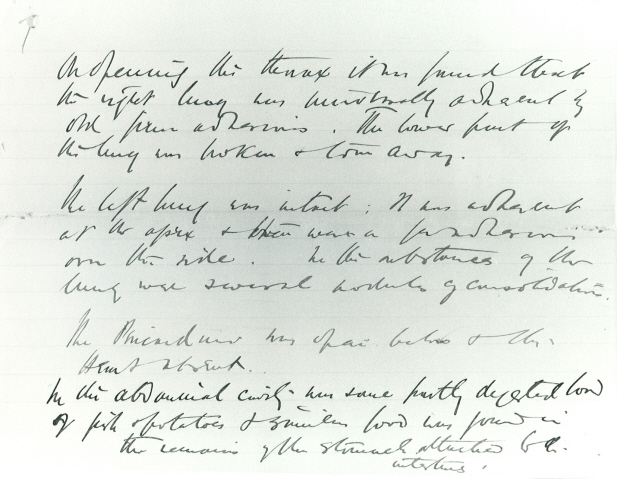 On opening the thorax it was found that
the right lung was minimally adherent by
old firm adhesions. The lower part of
the lung was broken & torn away.
The left lung was intact: it was adherent
at the apex & there were a few adhesions
over the side. In the substances of the
lung were several nodules of consolidation.
The Pericardium was open below & the
Heart absent.
In the abdominal cavity was some partly digested food
of fish & potatoes & similar food was found in
the remains of the stomach attached to the
intestines.